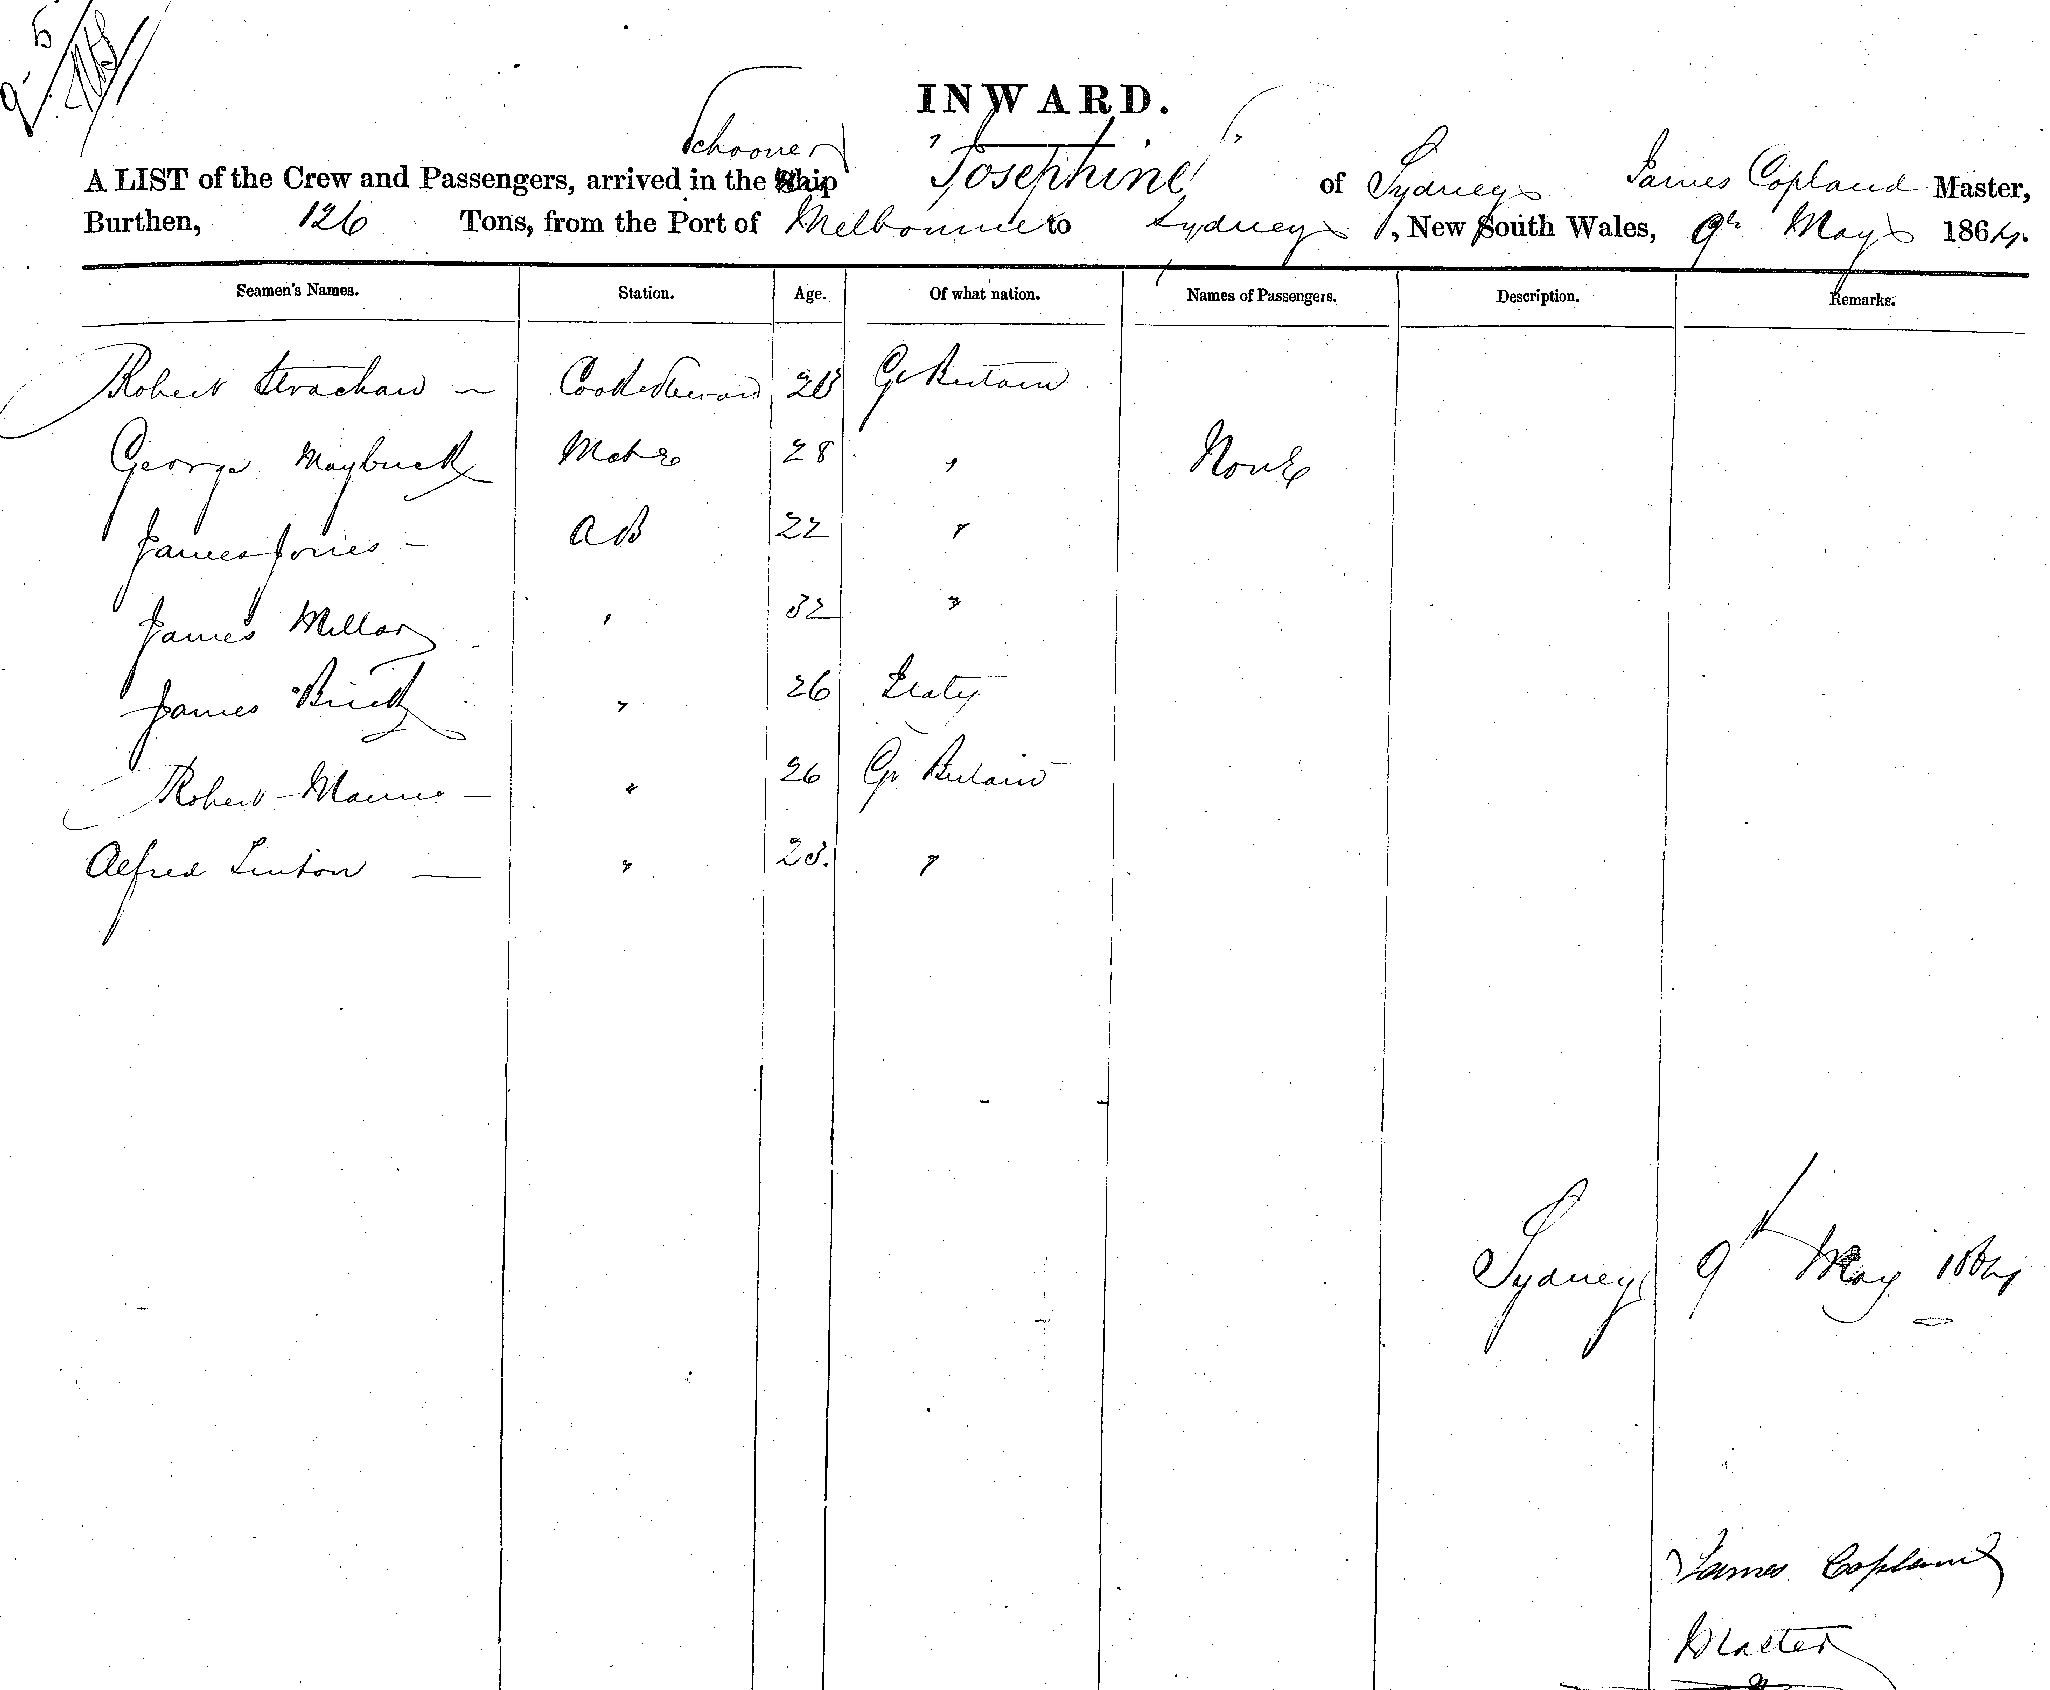 9 5
INWARD.
Schooner
A LIST of the Crew and Passengers, arrived in the Ship "Josephine" of Sydney James Copland Master,
Burthen, 126 Tons, from the Port of Melbourne to Sydney, New South Wales, 9th May 1864.
Seamen's Names. Station. Age. Of what nation. Names of Passengers. Description. Remarks.
Robert Strachan — Cook & Steward Gt Britain
George Maybuck Mate 28 " None
James Jones - AB 22 "
James Millar " 32 "
James " 26 Italy
Robert " 26 Gt Britain
Alfred Linton — " 23. "
Sydney 9th May 1864
James Copland
Master